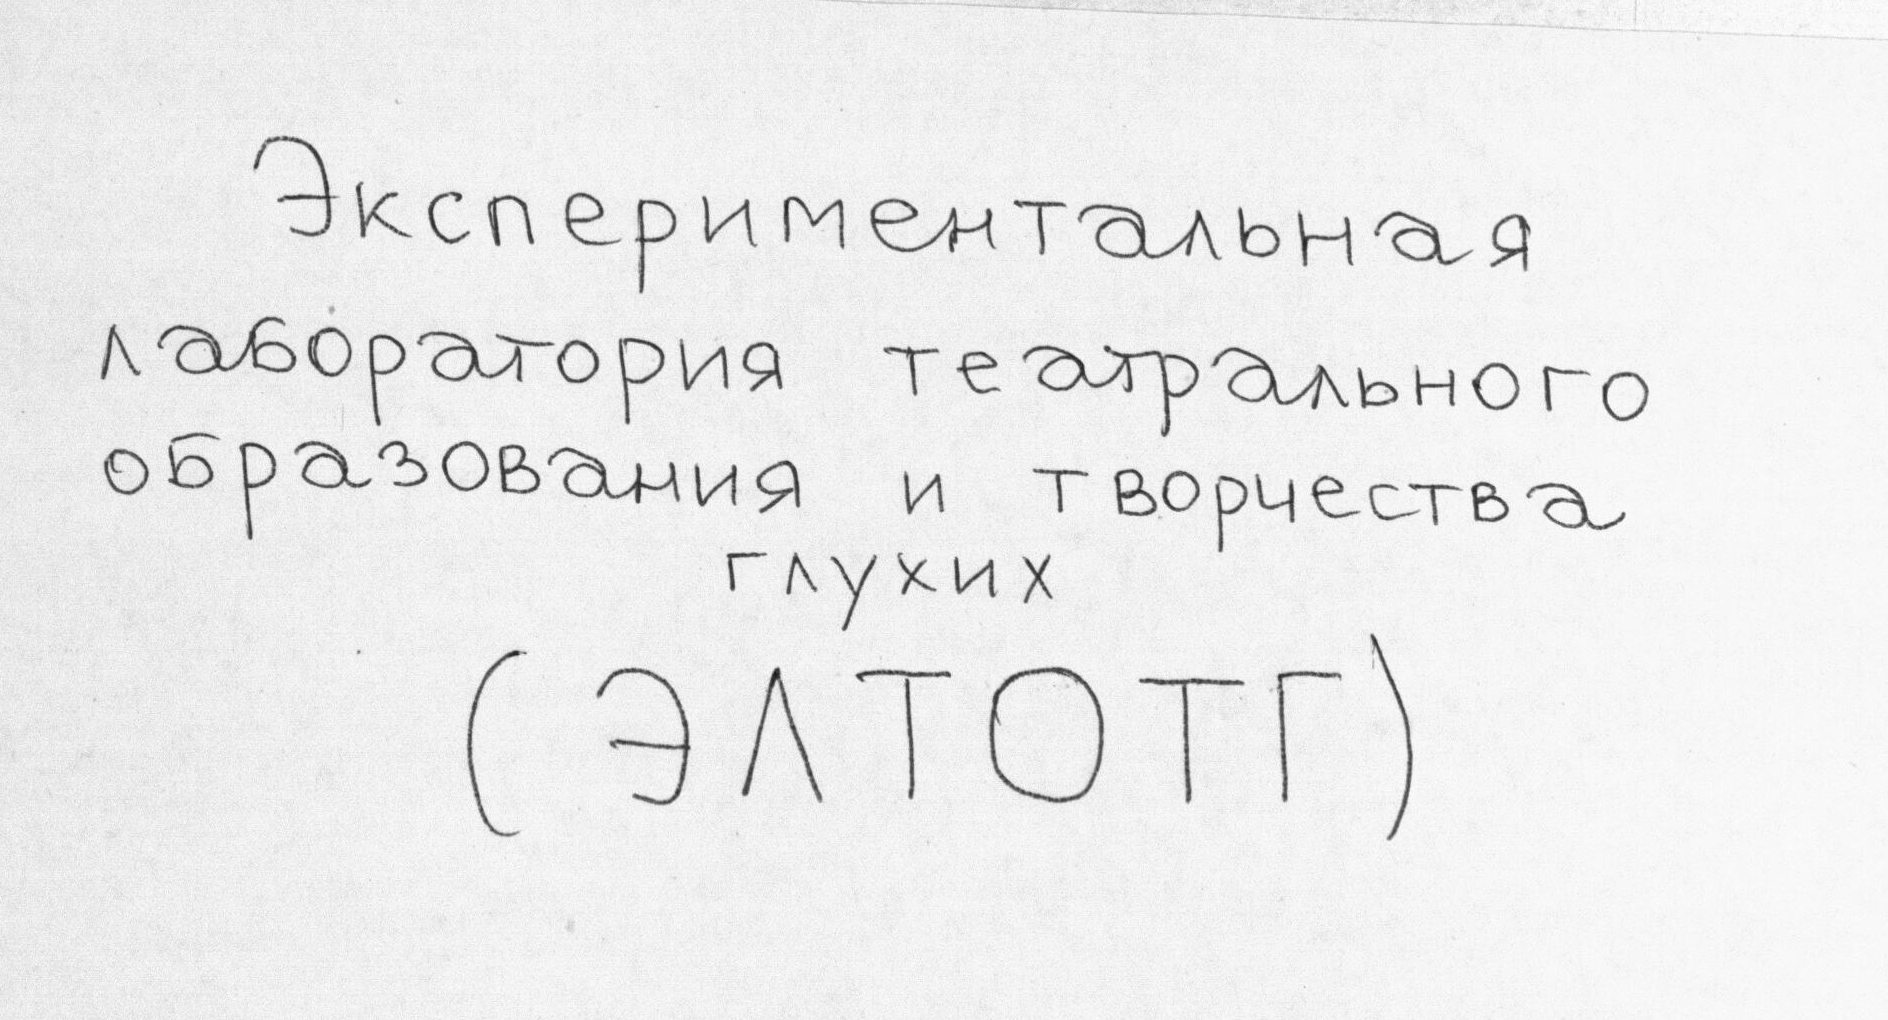 Экспериментальная
лаборатория театрального
образования и творчества
глухих
(ЭЛТОТГ)